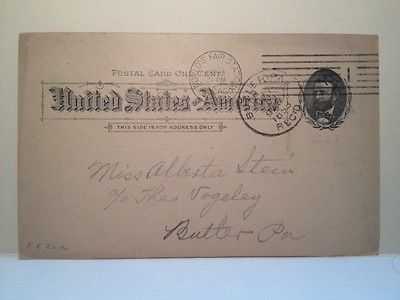 POSTAL CARD ONE CENT.
WORLD'S FAIR STATION
United States of America.
BUTLER PA.
REC'D
1893
THIS SIDE IS FOR ADDRESS ONLY
Miss Alberta Stein
c/o Theo Vogeley
Butler Pa